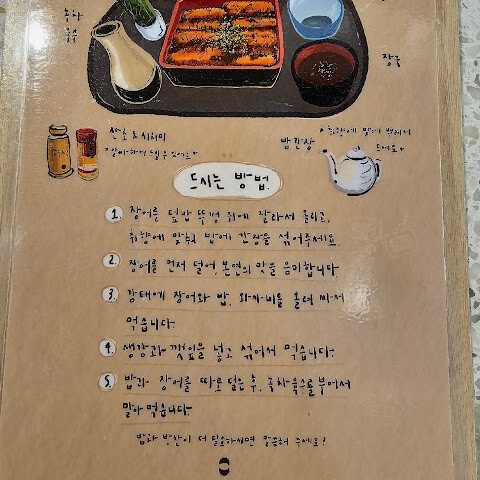 녹차
육수
장국
산초 & 시치미
밥 간장
드시는 방법.
1. 장어를 덮밥 뚜껑 위에 잘라서 올리고,
취향에 맞춰 밥에 간장을 섞어주세요.
2. 장어를 먼저 덜어, 본연의 맛을 음미합니다.
3. 감태에 장어와 밥, 와사비를 올려 싸서
먹습니다.
4. 생강과 깻잎을 넣고 섞어서 먹습니다.
5. 밥과 장어를 따로 덜은 후, 녹차육수를 부어서
말아 먹습니다.
밥과 반찬이 더 필요하시면 말씀해 주세요!